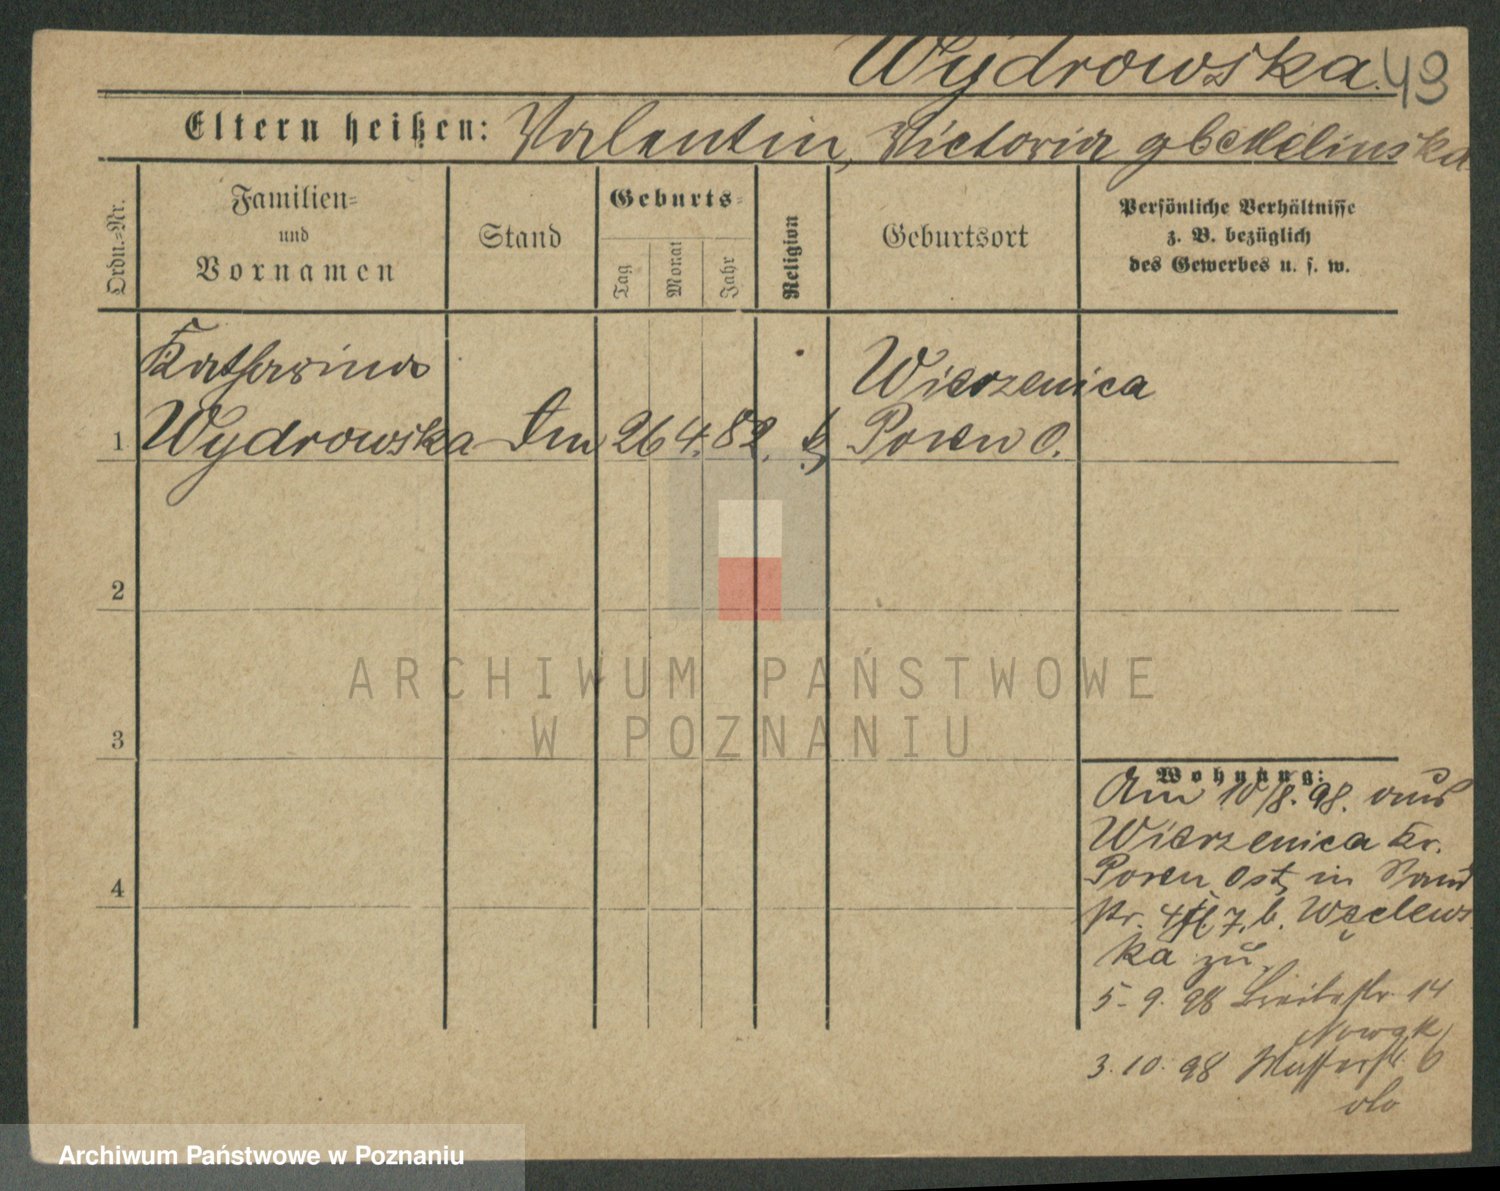 Wydrowska. 49
Eltern heißen: Valentin, Victoria g
Ordn.=Nr.
Familien=
und
Vornamen
Stand
Geburts=
Tag
Monat
Jahr
Religion
Geburtsort
Persönliche Verhältnisse
z. B. bezüglich
des Gewerbes u. s. w.
Katharina
Wierzenica
1 Wydrowska 26 4. 82. k Posen O.
2
3
4
ARCHIWUM PAŃSTWOWE
W POZNANIU
Wohnung:
Am 10/8. 98. aus
Wierzenica Kr.
Posen Ost, in
str. 7, b. Węclews
ka zu.
5. 9. 98 Breitestr. 14
3. 10. 98 Wasserstr. 6
Archiwum Państwowe w Poznaniu